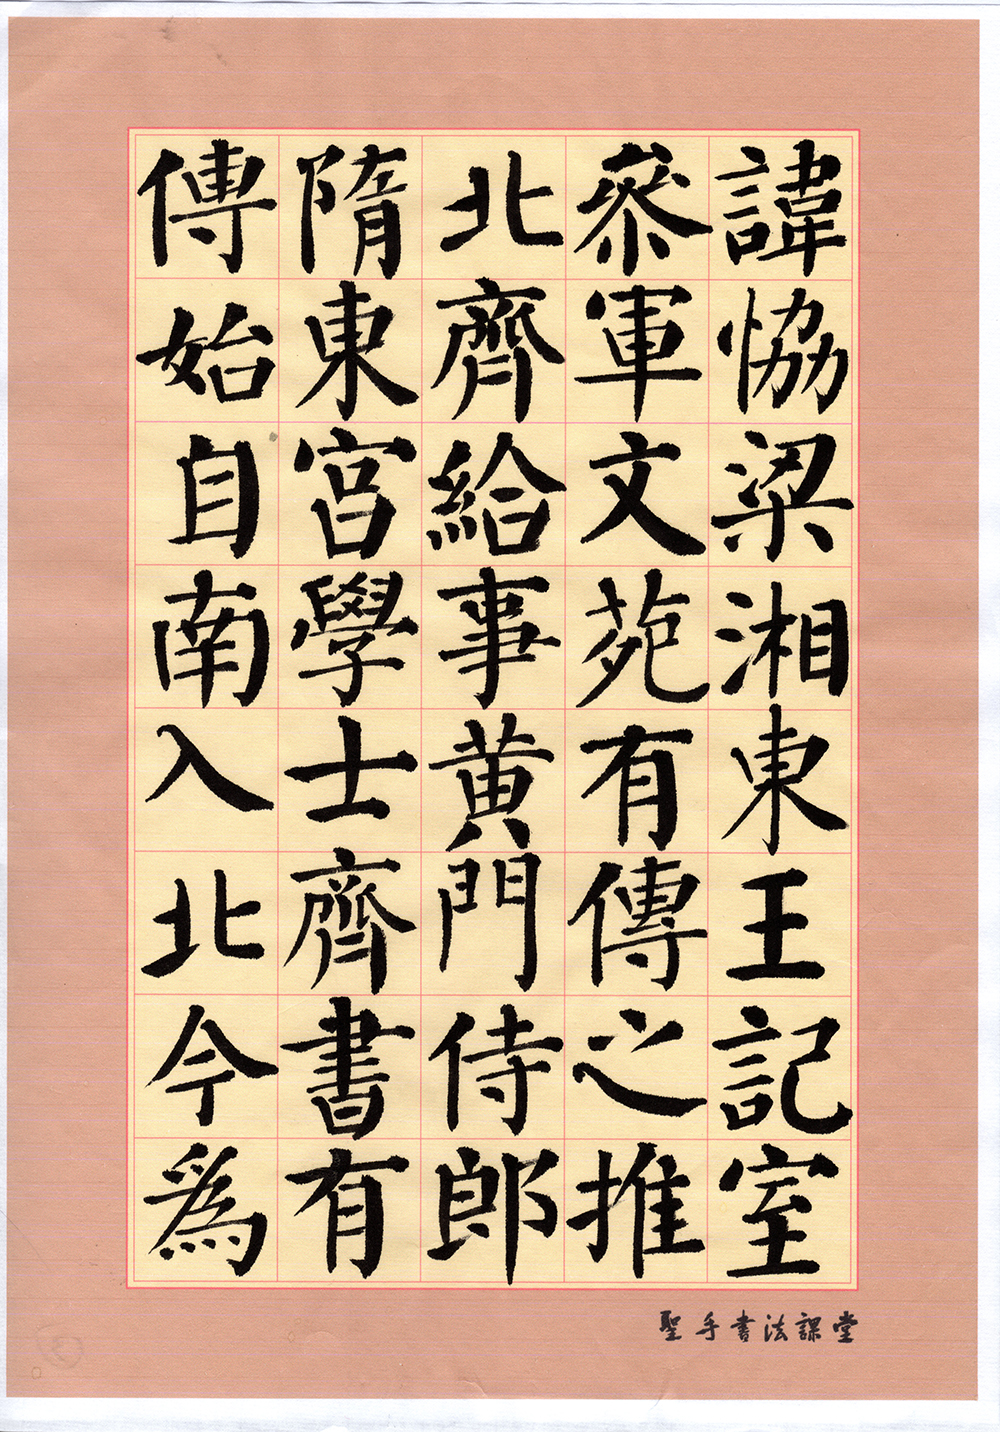 諱恊梁湘東王記室
叅軍文苑有傳之推
北齊給事黄門侍郎
隋東宫學士齊書有
傳始自南入北今爲
聖手書法課堂